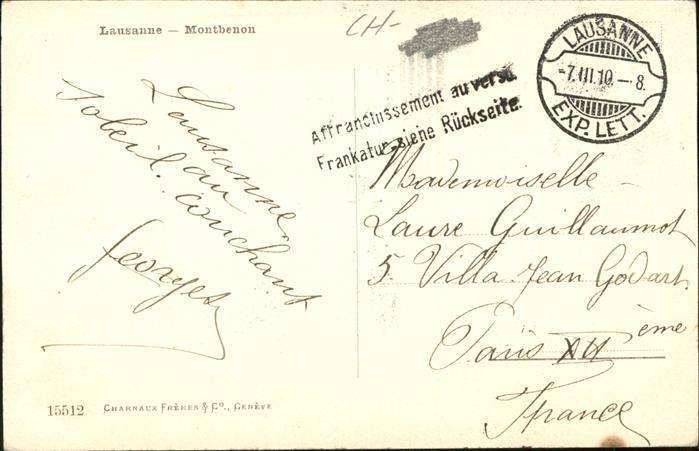 Lausanne – Montbenon
CH-
Affranchissement au verso.
Frankatur siehe Rückseite.
LAUSANNE
-7.III.10.-8.
EXP. LETT.
Lausanne.
Soleil au
couchant
Georges
Mademoiselle
Laure Guillaumot
5. Villa Jean Godart.
Paris XII ème
France
15512 CHARNAUX FRÈRES & Cº., GENÈVE